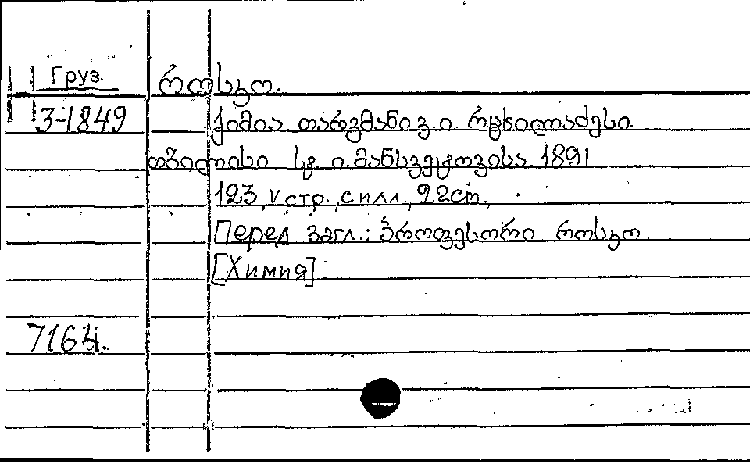 Груз. როსკო.
3-1849 ქიმია თარგმანი გ. ი. რცხილაძესი
თბილისი სტ. ი. მანსვეტოვისა 1891
123, V стр., с илл., 22 cm.,
Перед загл.: პროფესორი როსკო
[Химия]
7164.